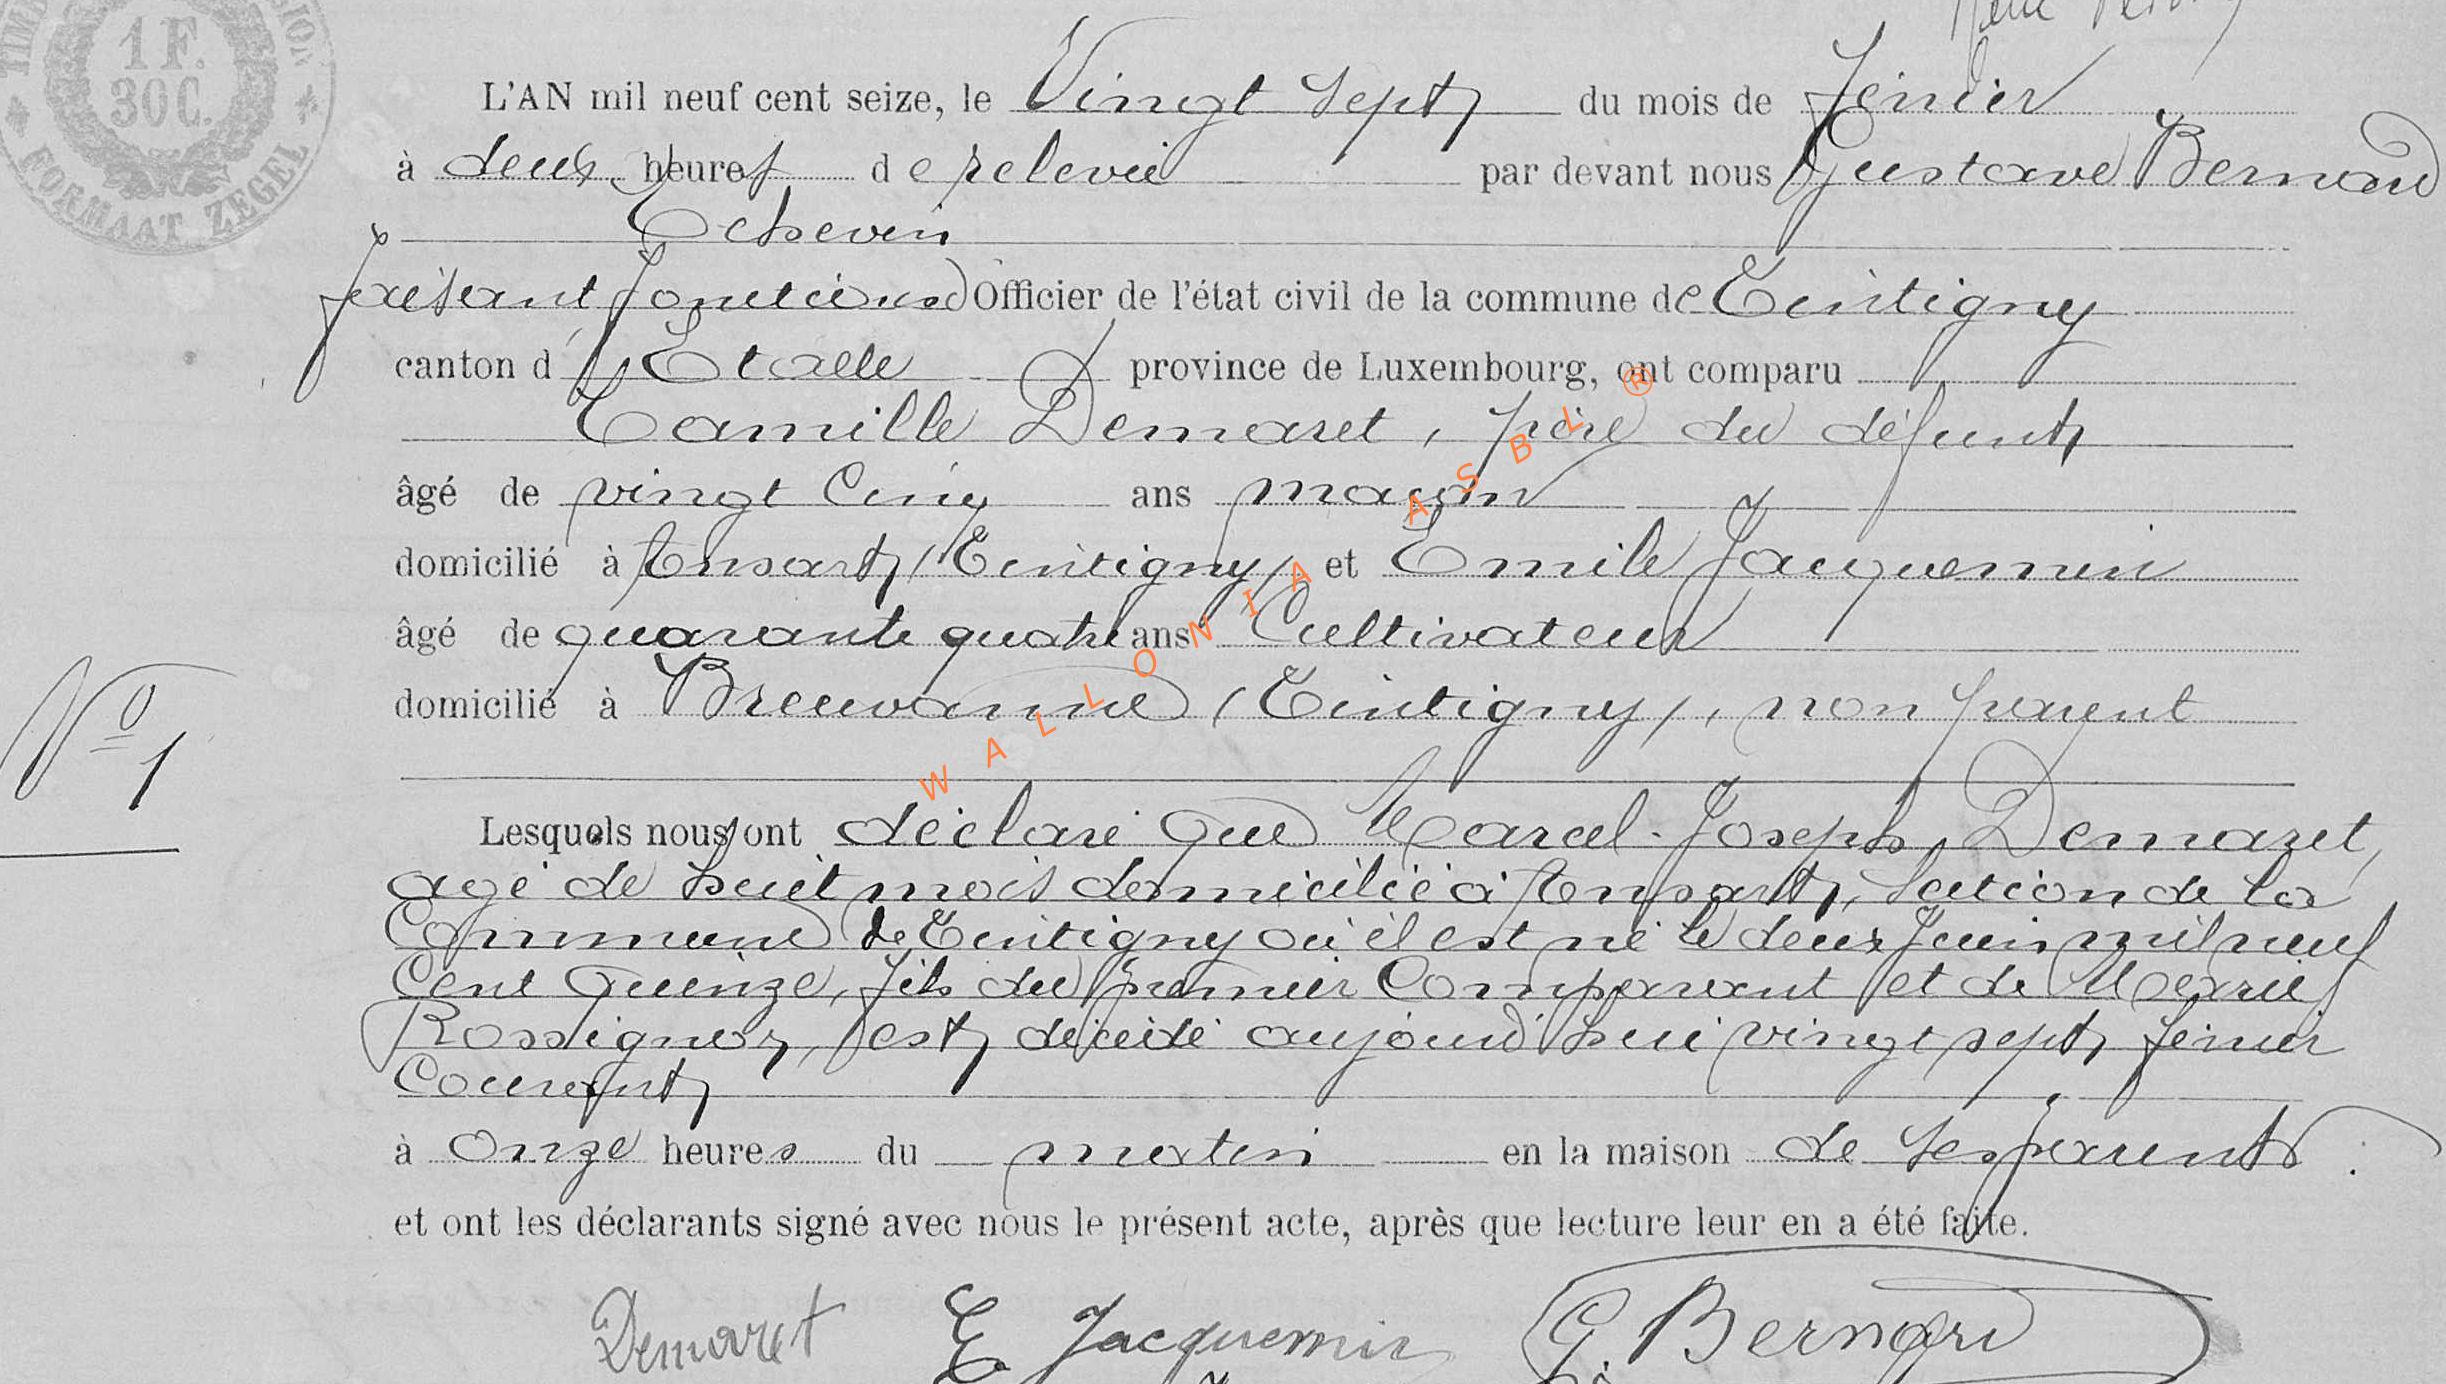 TIMB SION
1 F.
30 C.
FORMAAT ZEGEL
L'AN mil neuf cent seize, le Vingt sept du mois de février
à deux heures de relevée par devant nous Gustave Bernard
Echevin
faisant fonctions d'Officier de l'état civil de la commune de Tintigny
canton d'Etalle province de Luxembourg, ont comparu
Camille Demaret, père du défunt
âgé de vingt cinq ans maçon
domicilié à Ansart (Tintigny) et Emile Jacquemin
âgé de quarante quatre ans Cultivateur
domicilié à Breuvanne (Tintigny), non parent
Nº
1
Lesquels nous ont déclaré que Marcel-Joseph Demaret,
agé de huit mois domicilié à Ansart, Section de la
Commune de Tintigny où il est né le deux Juin mil neuf
Cent Quinze, fils du premier Comparant et de Marie
Rossignon, est décédé aujourd'hui vingt sept février
Courant
à onze heures du matin en la maison de ses parents.
et ont les déclarants signé avec nous le présent acte, après que lecture leur en a été faite.
Demaret E. Jacquemin G. Bernard
WALLONIA ASBL ®